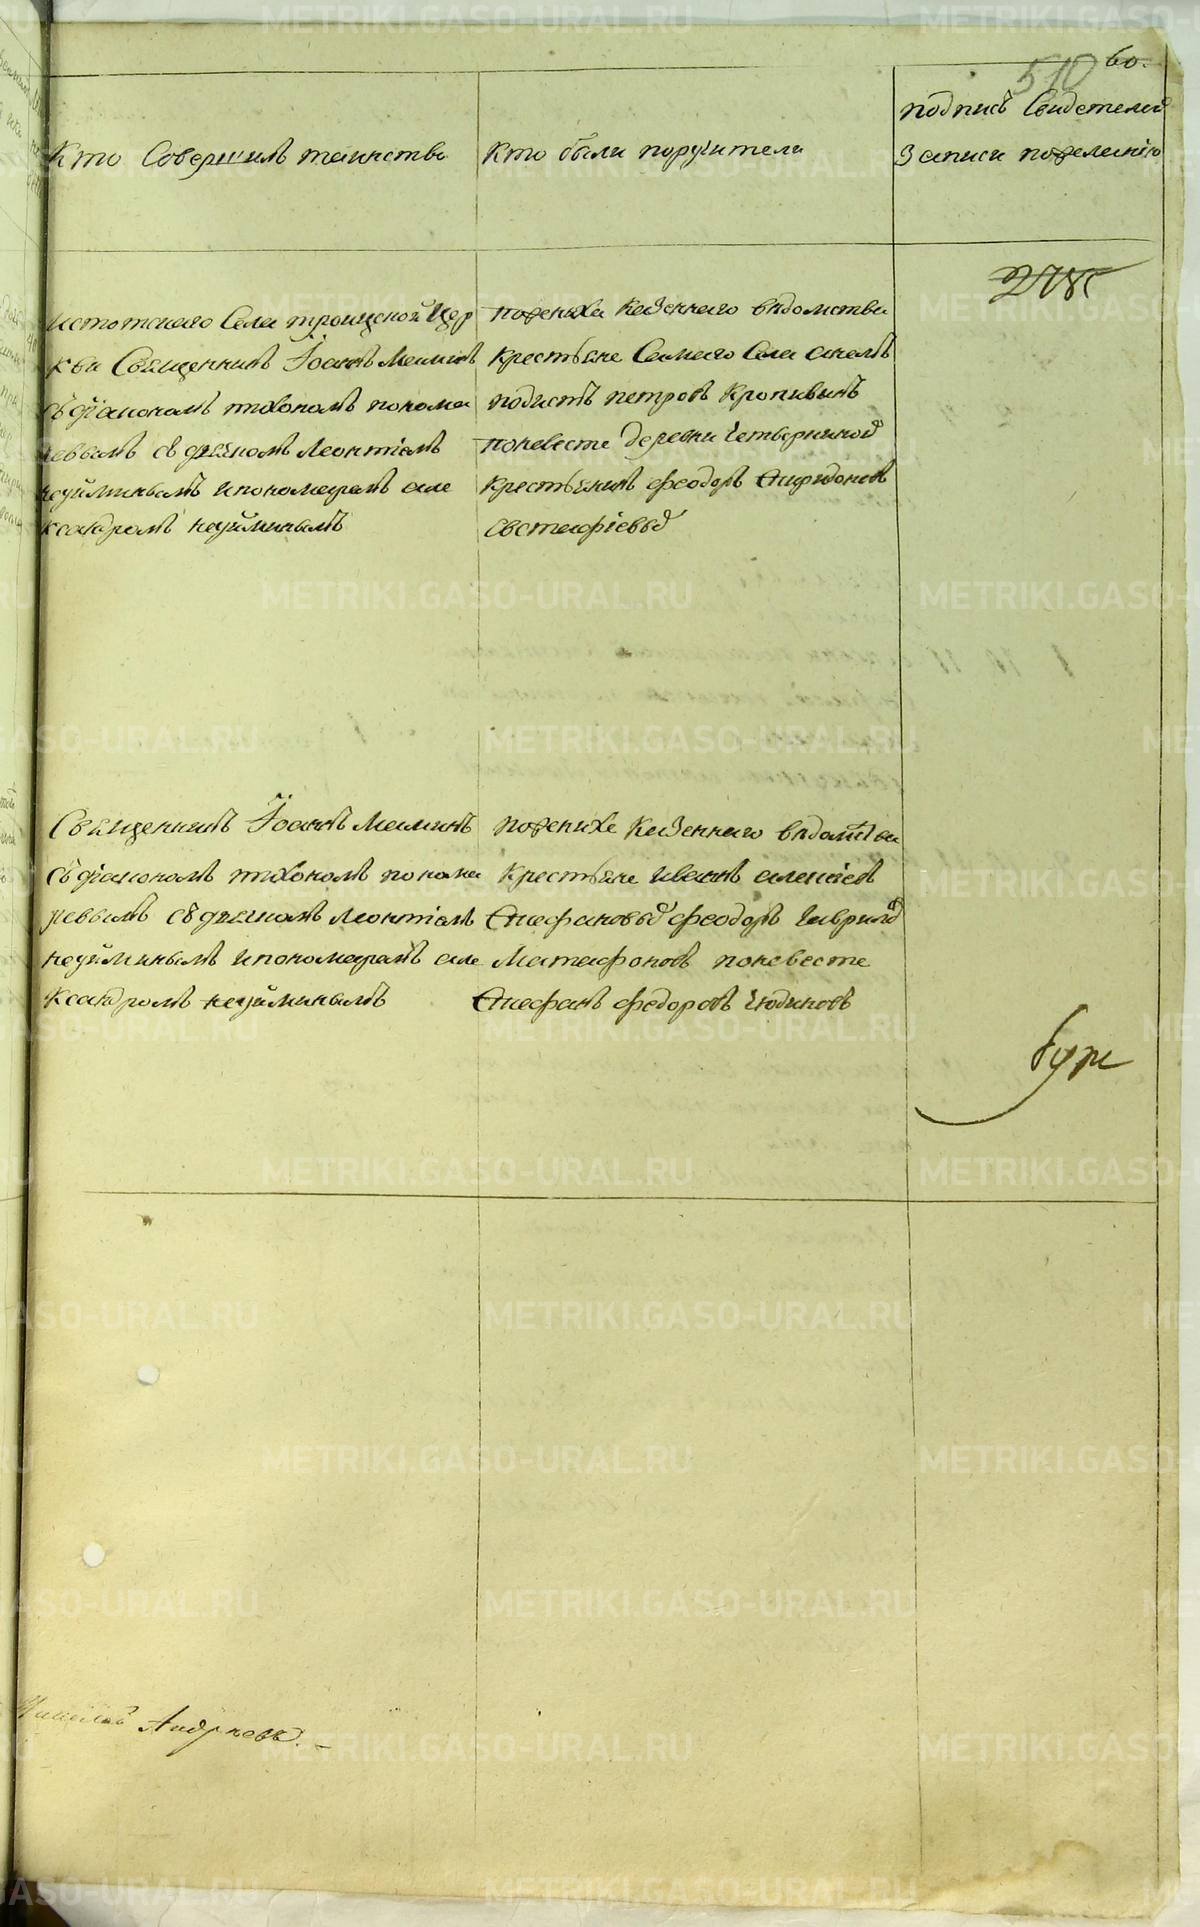 510 60.
Кто Совершилъ таинство
Кто были поручители
подпись Свидетелей
Записи пожеланїю
Истотскаго Села троицкой Цер
кви Священникъ Іоаннъ Маминъ
съ дїакономъ тихономъ понома
ревымъ съ дьячкомъ Леонтїемъ
неуйминымъ и пономаремъ але
ксандромъ неуйминымъ
пожениха Казеннаго ведомства
крестьяне Самаго Села
петровъ Кропивинъ
поневесте деревни Четверкиной
крестьянинъ феодоръ Спиридоновъ
евстафїевыхъ
Священникъ Іоаннъ Маминъ
съ дїакономъ тихономъ понома
ревымъ съ дьячкомъ Леонтїемъ
неуйминымъ и пономаремъ але
ксандромъ неуйминымъ
поженихе Казеннаго ведомства
крестьяне Иванъ алексїевъ
Стефановыхъ феодоръ Гаврилов
Матафоновъ поневесте
Стефанъ федоровъ Чюдиновъ
Андреевъ.
METRIKI.GASO-URAL.RU